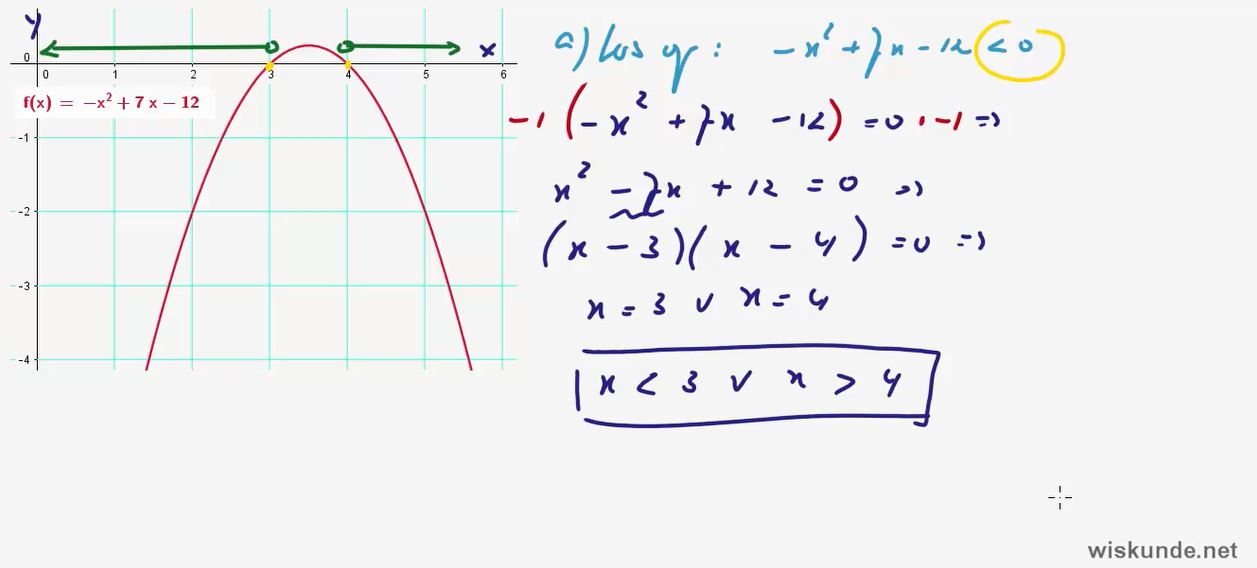 y
x
0
0 1 2 3 4 5 6
f(x) = −x² + 7 x − 12
-1
-2
-3
-4
a) Los op : -x² + 7x - 12 < 0
-1 (-x² + 7x - 12) = 0 · -1 =>
x² - 7x + 12 = 0 =>
(x - 3)(x - 4) = 0 =>
x = 3 ∨ x = 4
x < 3 ∨ x > 4
wiskunde.net